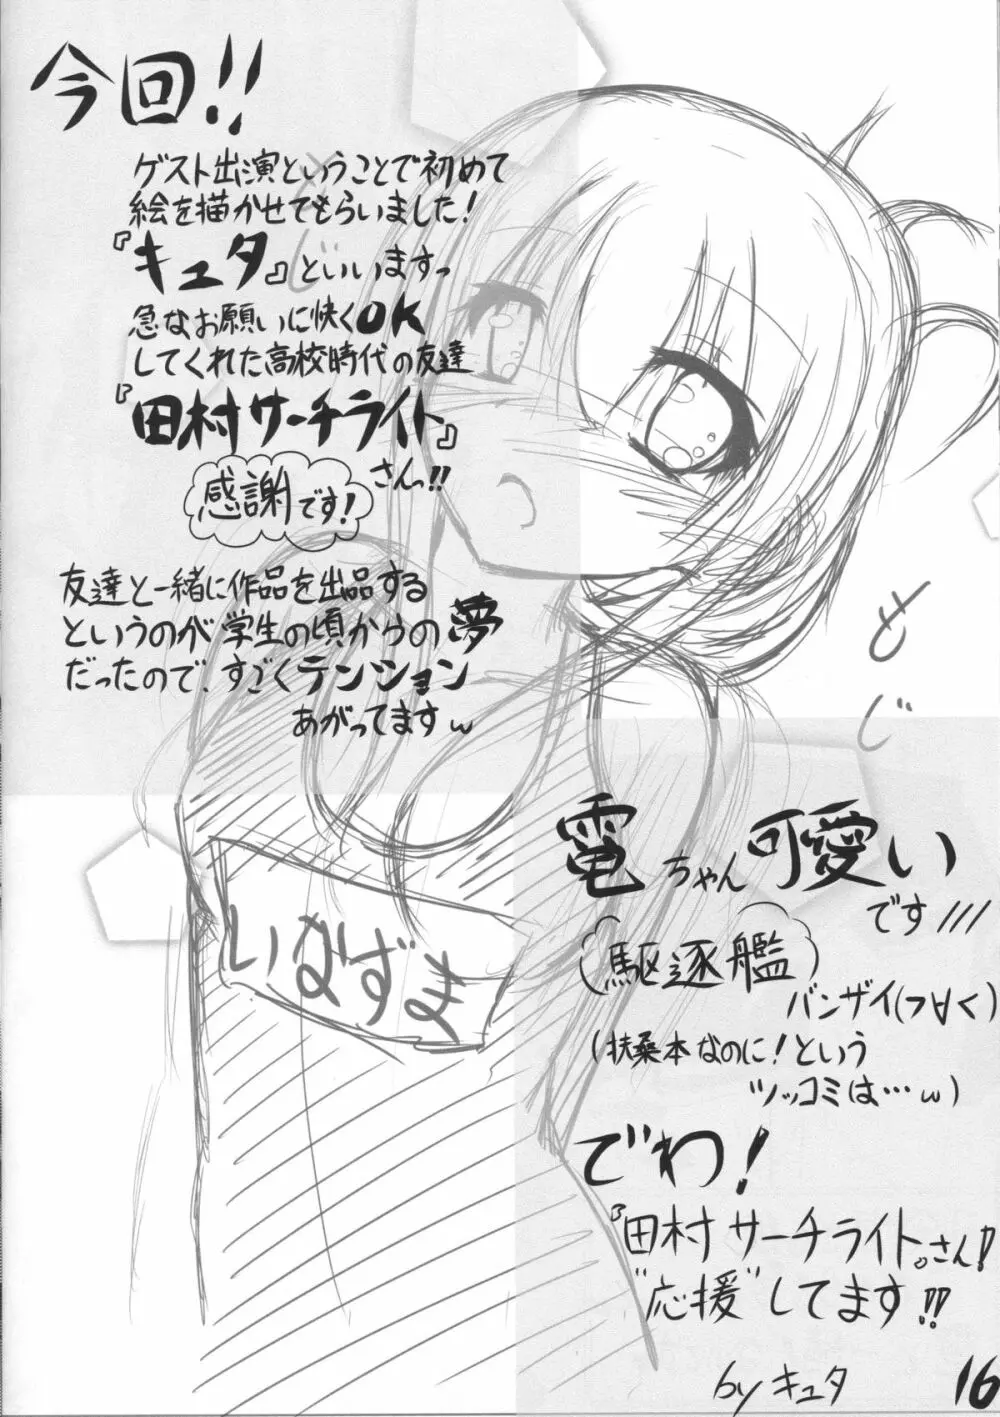 今回!!
ゲスト出演ということで初めて
絵を描かせてもらいました!
『キュタ』といいますっ
急なお願いに快くOK
してくれた高校時代の友達
『田村サーチライト』
さんっ!!
感謝です!
友達と一緒に作品を出品する
というのが学生の頃からの夢
だったので、すごくテンション
あがってますw
いなずま
もじ
電ちゃん可愛い
です///
(駆逐艦)
バンザイ(つ∀く)
(扶桑本なのに!という
ツッコミは…w)
でわ!
『田村サーチライト』さん!
"応援"してます!!
by キュタ
16